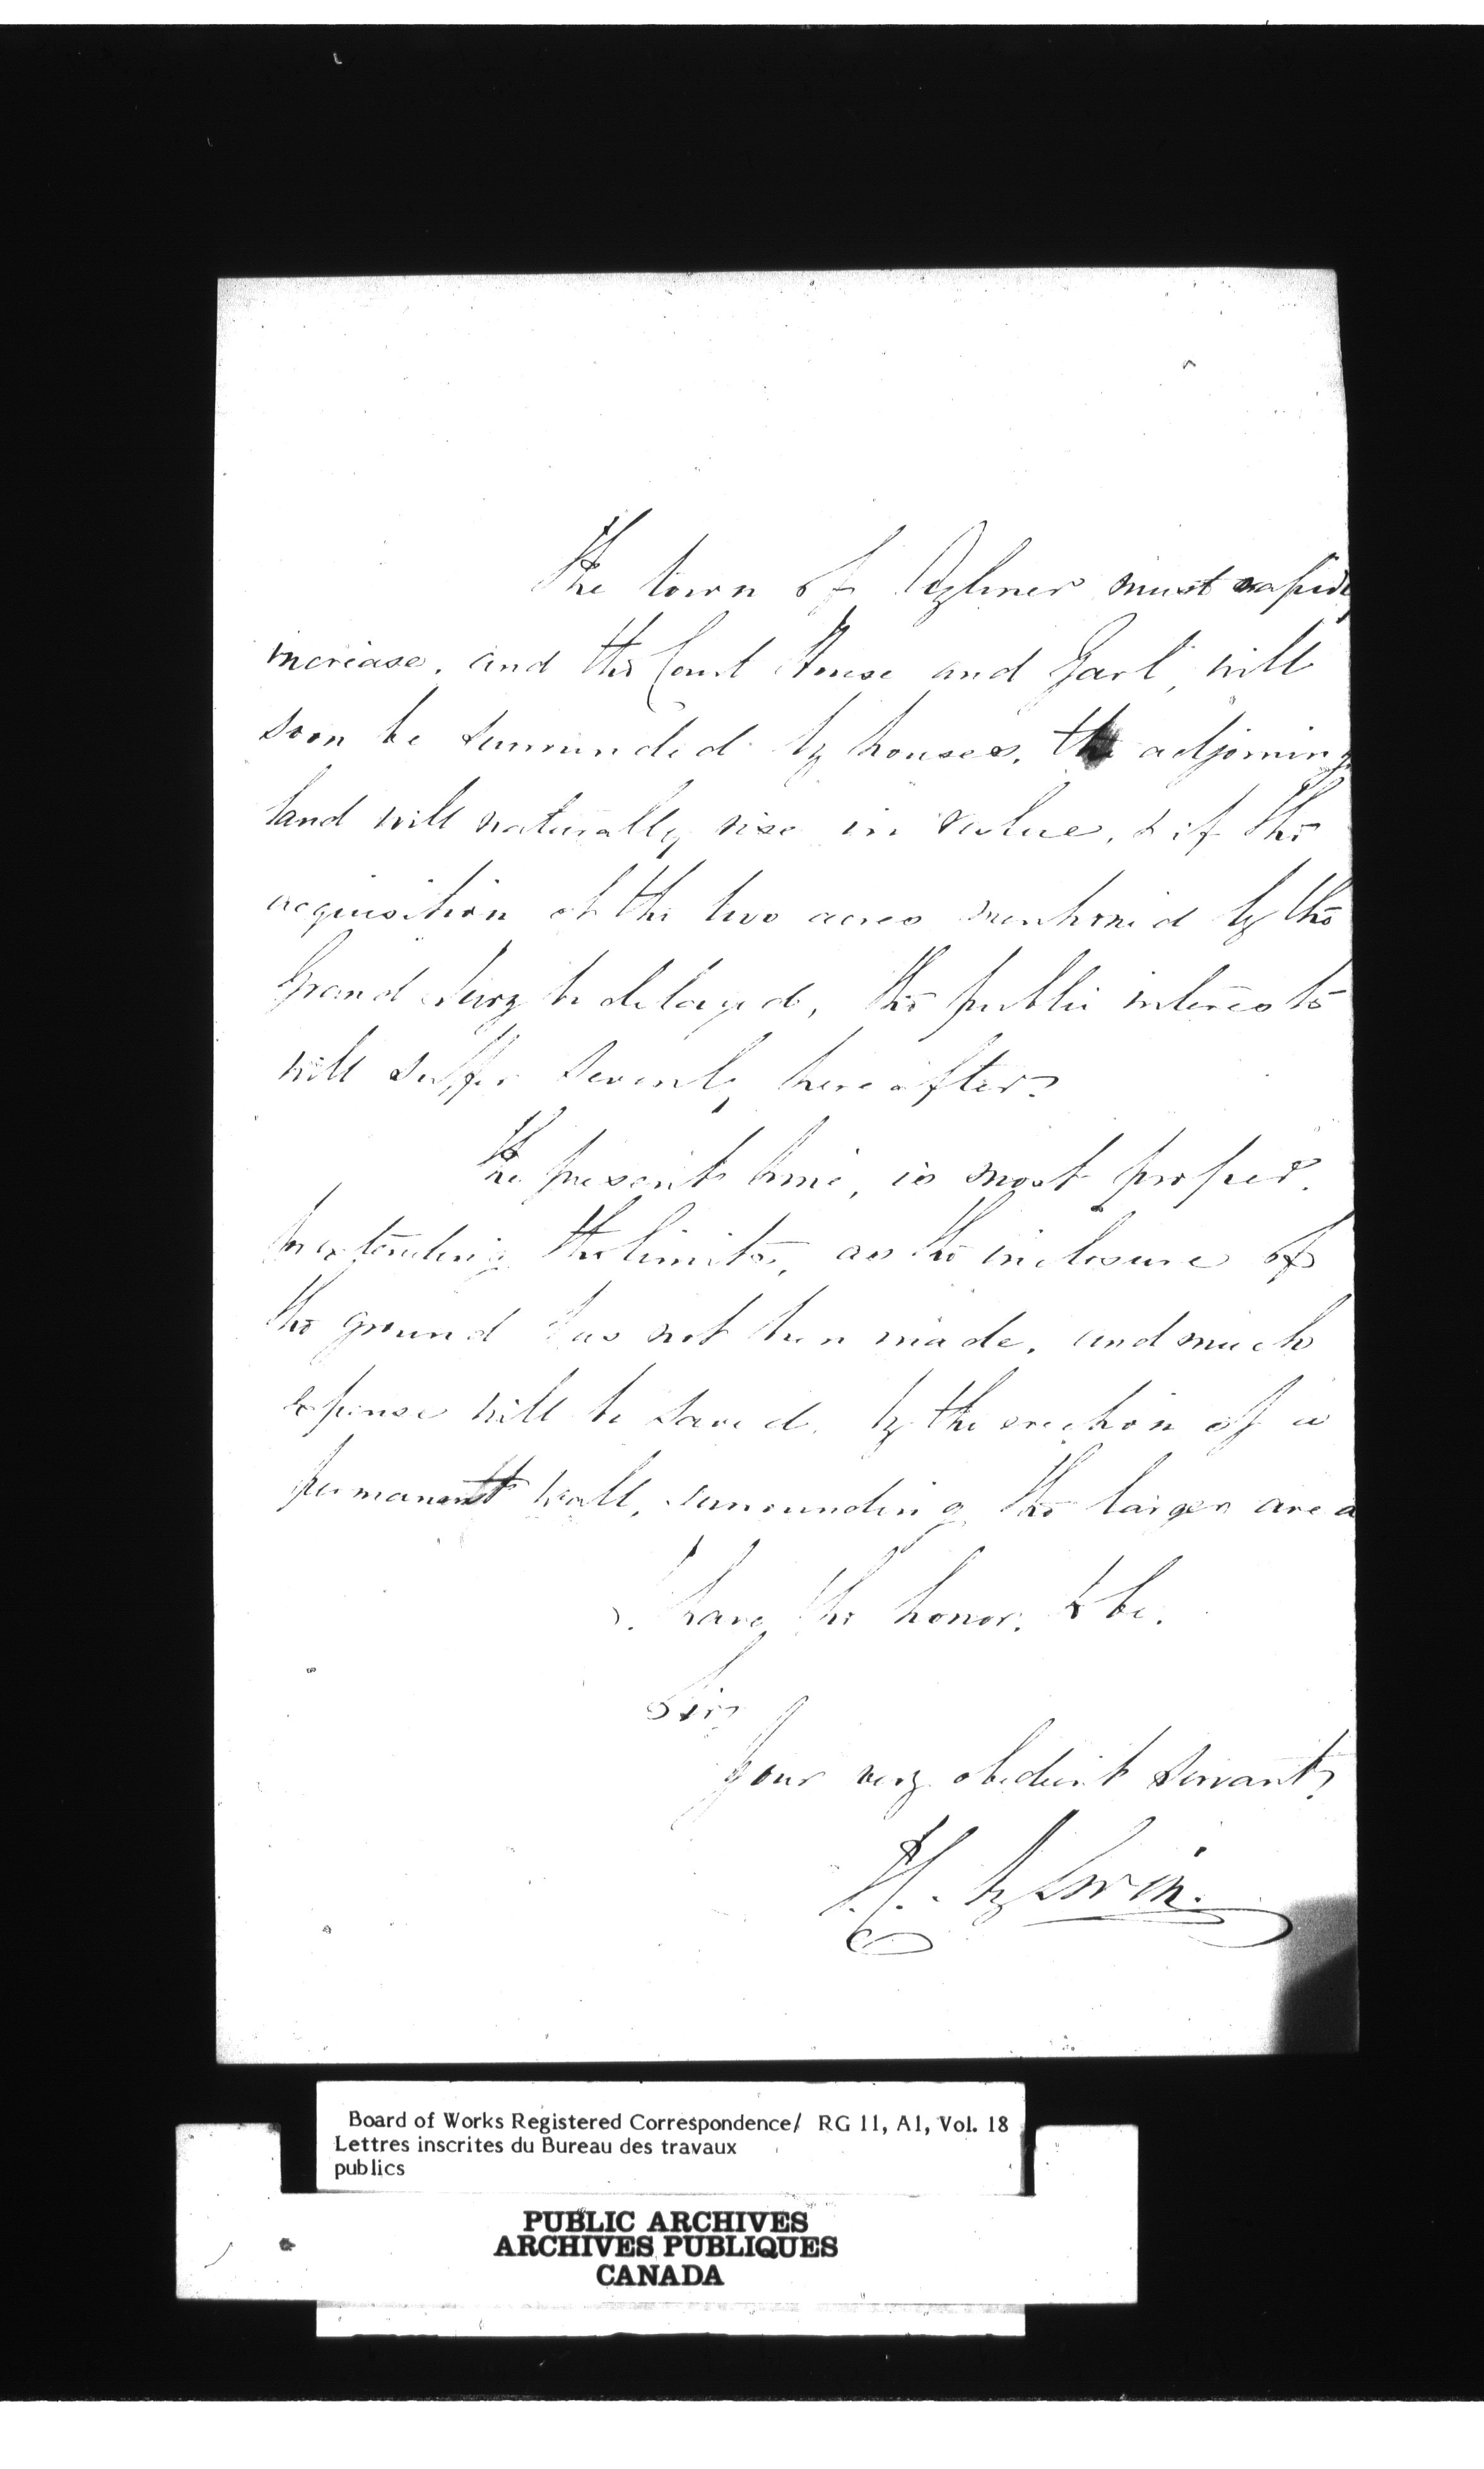 The town of Aylmer must rapidly
increase, and the Court House and Gaol, will
soon be surrounded by houses, the adjoining
land will naturally rise in value, & if the
acquisition of the two acres mentioned by the
Grand Jury be delayed, the public interests
will suffer severely hereafter.
The present time, is most proper,
for extending the limits, as the inclosure of
the ground has not been made, and much
expense will be saved, by the erection of a
permanent wall, surrounding the larger area
I have the honor, to be,
Sir,
Your very obedient servant,
Aylwin.
Board of Works Registered Correspondence/ RG 11, A1, Vol. 18
Lettres inscrites du Bureau des travaux
publics
PUBLIC ARCHIVES
ARCHIVES PUBLIQUES
CANADA